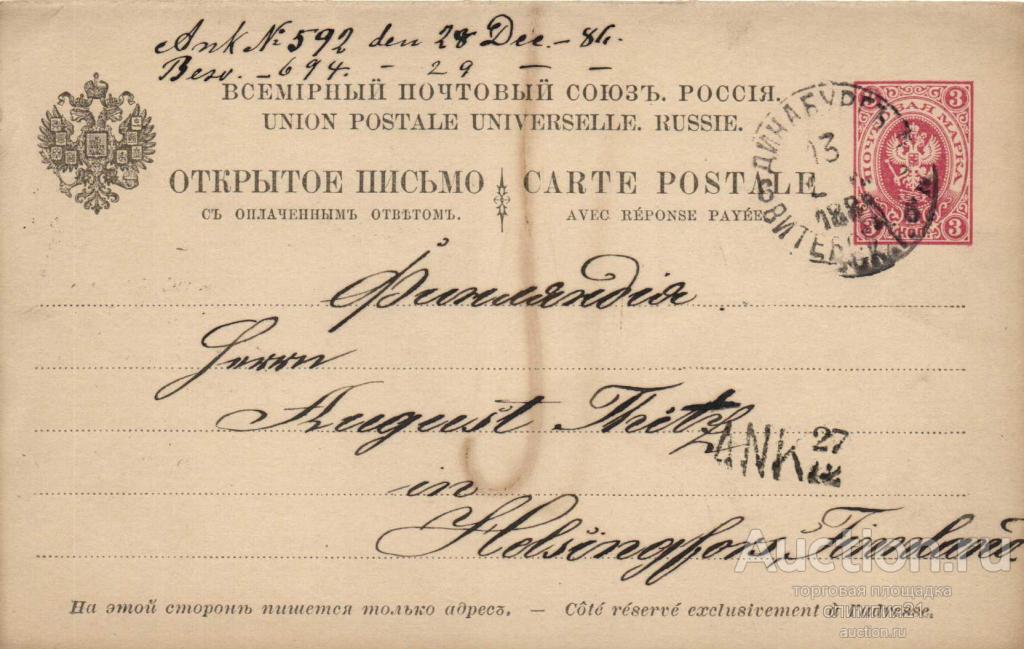 Ank № 592 den 28 Dec. - 86.
Besv. - 694. - 29 - - -
ВСЕМІРНЫЙ ПОЧТОВЫЙ СОЮЗЪ. РОССІЯ.
UNION POSTALE UNIVERSELLE. RUSSIE.
ОТКРЫТОЕ ПИСЬМО
CARTE POSTALE
СЪ ОПЛАЧЕННЫМЪ ОТВѢТОМЪ.
AVEC RÉPONSE PAYÉE
3 ПОЧТОВАЯ МАРКА 3
3 КОП. 3
ДИНАБУРГЪ
13
188
ВИТЕБСК.
Финляндія
Herrn
August
ANK 27
in
Helsingfors, Finnland
На этой сторонѣ пишется только адресъ. — Côté réservé exclusivement à l'adresse.
Auction.ru
торговая площадка
auction.ru